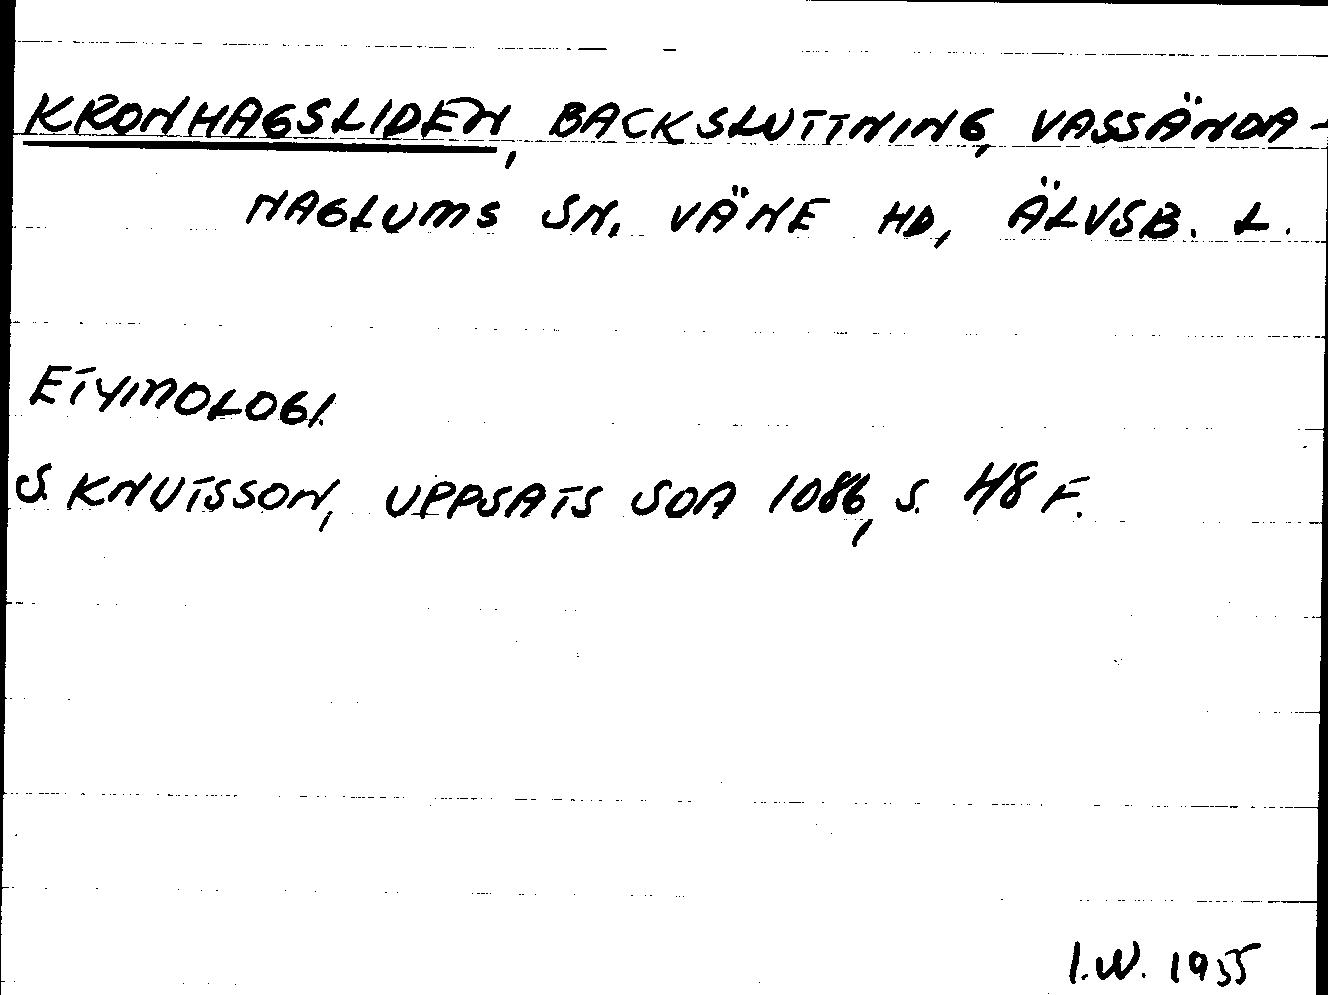 KRONHAGSLIDEN, BACKSLUTTNING, VASSÄNDA-
NAGLUMS SN, VÄNE HD, ÄLVSB. L.
ETYMOLOGI.
S. KNUTSSON, UPPSATS SOA 1086, S. 48 F.
I.W. 1955